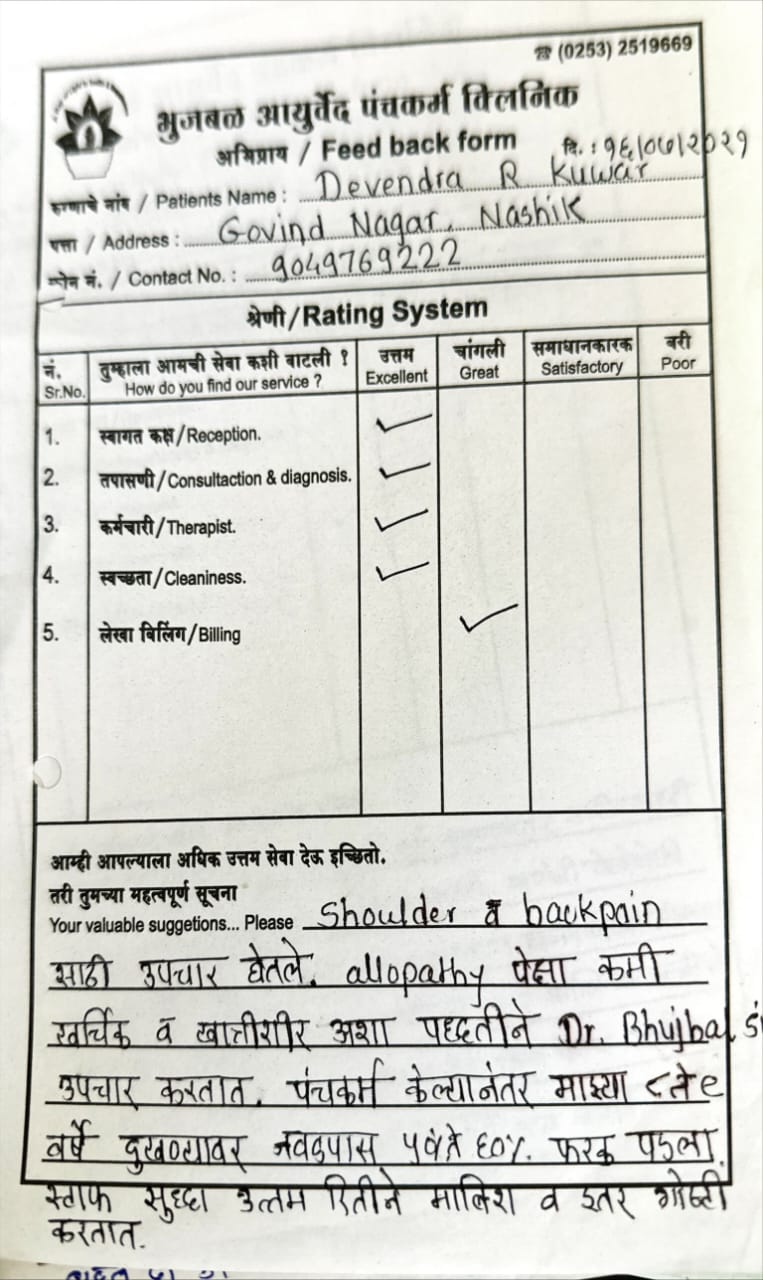 ☎ (0253) 2519669
भुजबळ आयुर्वेद पंचकर्म क्लिनिक
अभिप्राय / Feed back form
दि. : १६/०७/२०२१
रुग्णाचे नांव / Patients Name : Devendra R Kuwar
पत्ता / Address : Govind Nagar, Nashik
फोन नं. / Contact No. : 9049769222
श्रेणी/Rating System
नं. तुम्हाला आमची सेवा कशी वाटली ? उत्तम चांगली समाधानकारक बरी
Sr.No. How do you find our service ? Excellent Great Satisfactory Poor
1. स्वागत कक्ष/Reception. ✓
2. तपासणी/Consultaction & diagnosis. ✓
3. कर्मचारी/Therapist. ✓
4. स्वच्छता/Cleaniness. ✓
5. लेखा बिलिंग/Billing ✓
आम्ही आपल्याला अधिक उत्तम सेवा देऊ इच्छितो.
तरी तुमच्या महत्वपूर्ण सूचना
Your valuable suggetions... Please Shoulder व backpain
साठी उपचार घेतले. allopathy पेक्षा कमी
खर्चिक व खात्रीशीर अशा पध्दतीने Dr. Bhujbal
उपचार करतात. पंचकर्म केल्यानंतर माझ्या ८ ते ९
वर्षे दुखण्यावर जवळपास ६०% फरक पडला.
स्टाफ सुध्दा उत्तम रितीने मालिश व इतर गोष्टी
करतात.